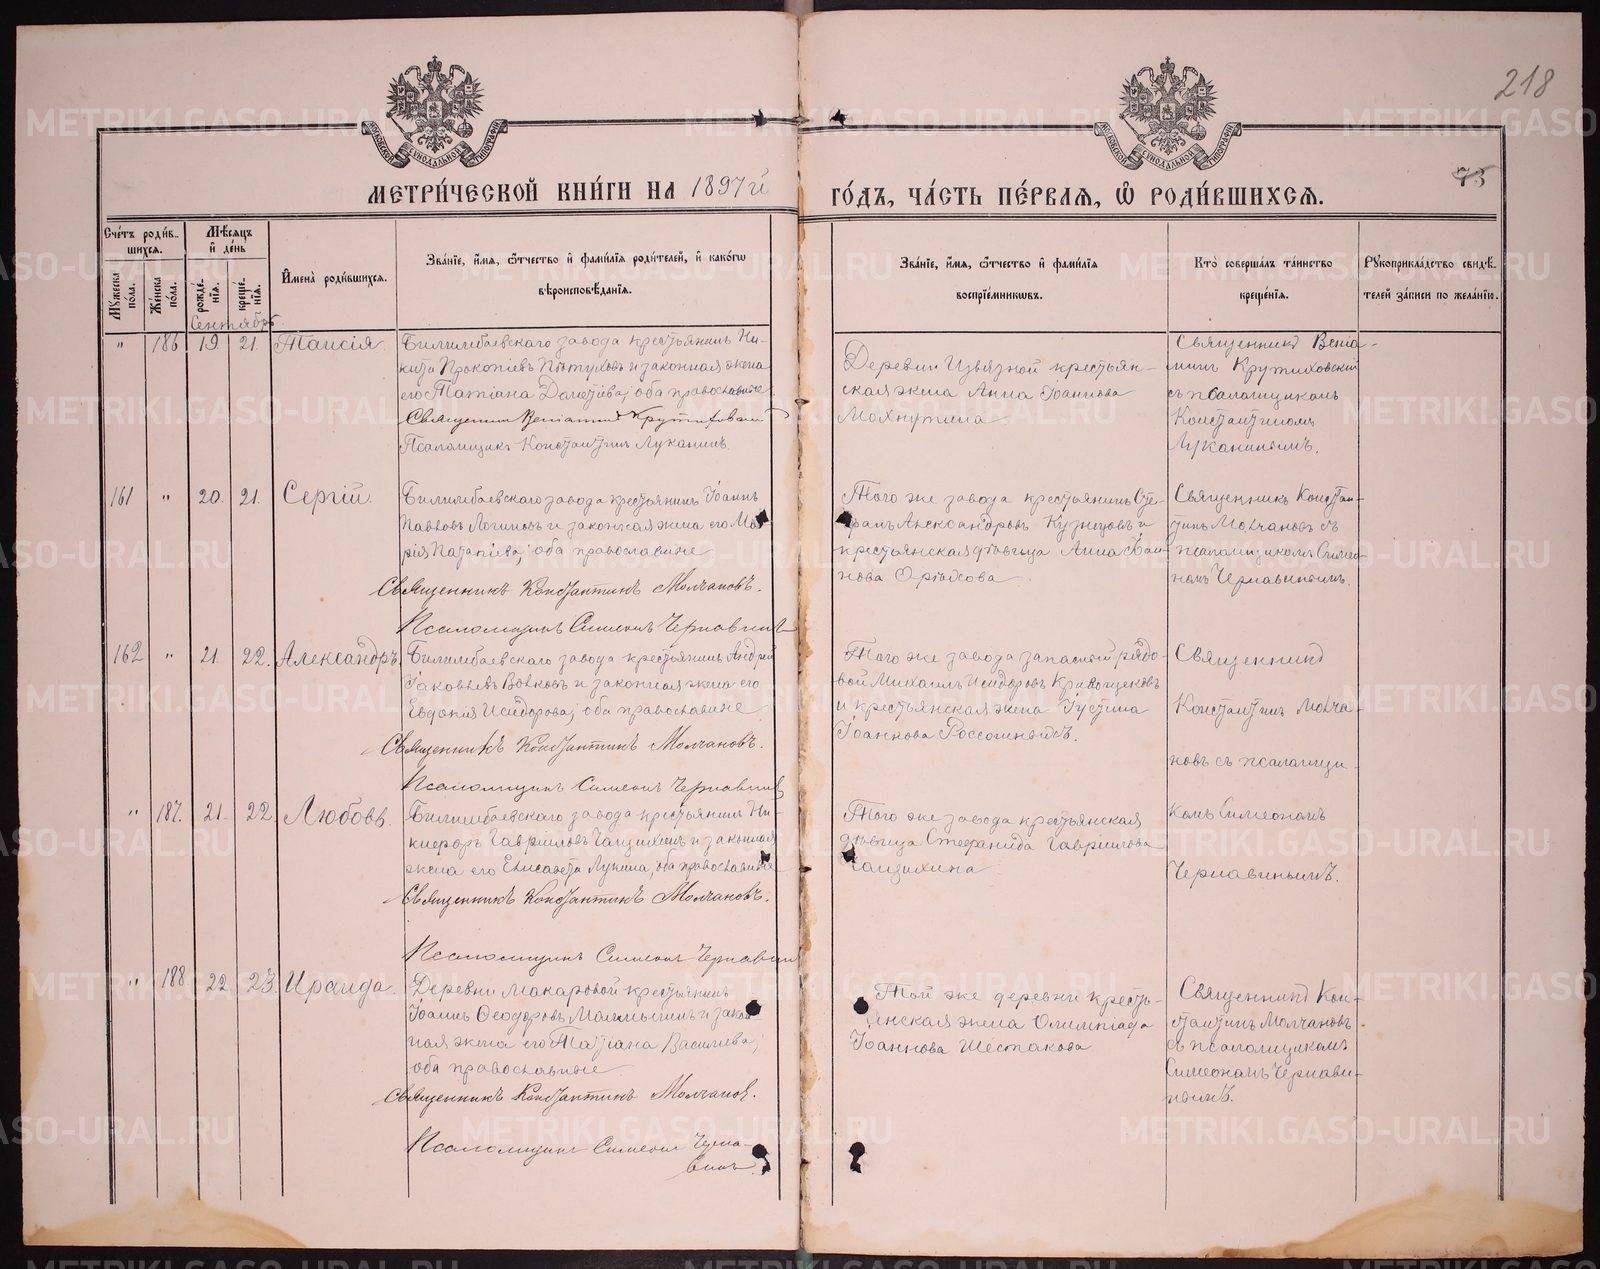 218
МЕТРИ́ЧЕСКОЙ КНИ́ГИ НА 1897й
ГО́ДЪ, ЧА́СТЬ ПЕ́РВАЯ, Ѽ РОДИ́ВШИХСЯ.
75
Сче́тъ роди́в-
шихся.
Мѣ́сяцъ
и҆ де́нь
Мꙋ́жеска
по́ла.
Же́нска
по́ла.
рожде́-
нїя.
креще́-
нїя.
И҆мена̀ роди́вшихся.
Зва́нїе, и҆́мя, ѻ҆́тчество и҆ фами́лїя роди́телей, и҆ како́гѡ
вѣроисповѣ́данїя.
Зва́нїе, и҆́мя, ѻ҆́тчество и҆ фами́лїя
воспрїе́мникѡвъ.
Кто̀ соверша́лъ та́инство
креще́нїя.
Рꙋкоприкла́дство свидѣ́-
телей за́писи по жела́нїю.
Сентябрь
" 186 19. 21. Таисія
Билимбаевскаго завода крестьянинъ Ни-
кита Прокопіевъ Пѣтуховъ и законная жена
его Татіана Дометіева; оба православные
Священникъ Веніаминъ Крутиховскій
Псаломщикъ Константинъ Луканинъ.
Деревни Извязной крестьян-
ская жена Анна Іоаннова
Махнутина
Священникъ Веніа-
минъ Крутиховскій
съ псаломщикомъ
Константиномъ
Луканинымъ.
161 " 20. 21. Сергій
Билимбаевскаго завода крестьянинъ Іоаннъ
Павловъ Логиновъ и законная жена его Ма-
рія Патапіева; оба православные
Священникъ Константинъ Молчановъ.
Псаломщикъ Симеонъ Чернавинъ
Того же завода крестьянинъ Сте-
фанъ Александровъ Кузнецовъ и
крестьянская дѣвица Анна Іоан-
нова Орѣхова
Священникъ Констан-
тинъ Молчановъ съ
псаломщикомъ Симео-
номъ Чернавинымъ.
162 " 21. 22. Александръ
Билимбаевскаго завода крестьянинъ Андрей
Іаковлевъ Волковъ и законная жена его
Евдокія Исидорова; оба православные
Священникъ Константинъ Молчановъ.
Псаломщикъ Симеонъ Чернавинъ
Того же завода запасный рядо-
вой Михаилъ Исидоровъ Кривощековъ
и крестьянская жена Іустина
Іоаннова
Священникъ
Константинъ Молча-
новъ съ псаломщи-
комъ Симеономъ
Чернавинымъ.
" 187. 21. 22 Любовь.
Билимбаевскаго завода крестьянинъ Ни-
кифоръ Гавріиловъ и законная
жена его Елисавета Лукина, оба православные
Священникъ Константинъ Молчановъ.
Псаломщикъ Симеонъ Чернавинъ
Того же завода крестьянская
дѣвица Стефанида Гавріилова
" 188 22. 23. Ираида.
Деревни Макаровой крестьянинъ
Іоаннъ Ѳеодоровъ Малмыгинъ и закон-
ная жена его Татіана Васильева;
оба православные
Священникъ Константинъ Молчановъ.
Псаломщикъ Симеонъ Черна-
винъ.
Той же деревни кресть-
янская жена Олимпіада
Іоаннова Шестакова
Священникъ Кон-
стантинъ Молчановъ
съ псаломщикомъ
Симеономъ Чернави-
нымъ.
METRIKI.GASO-URAL.RU